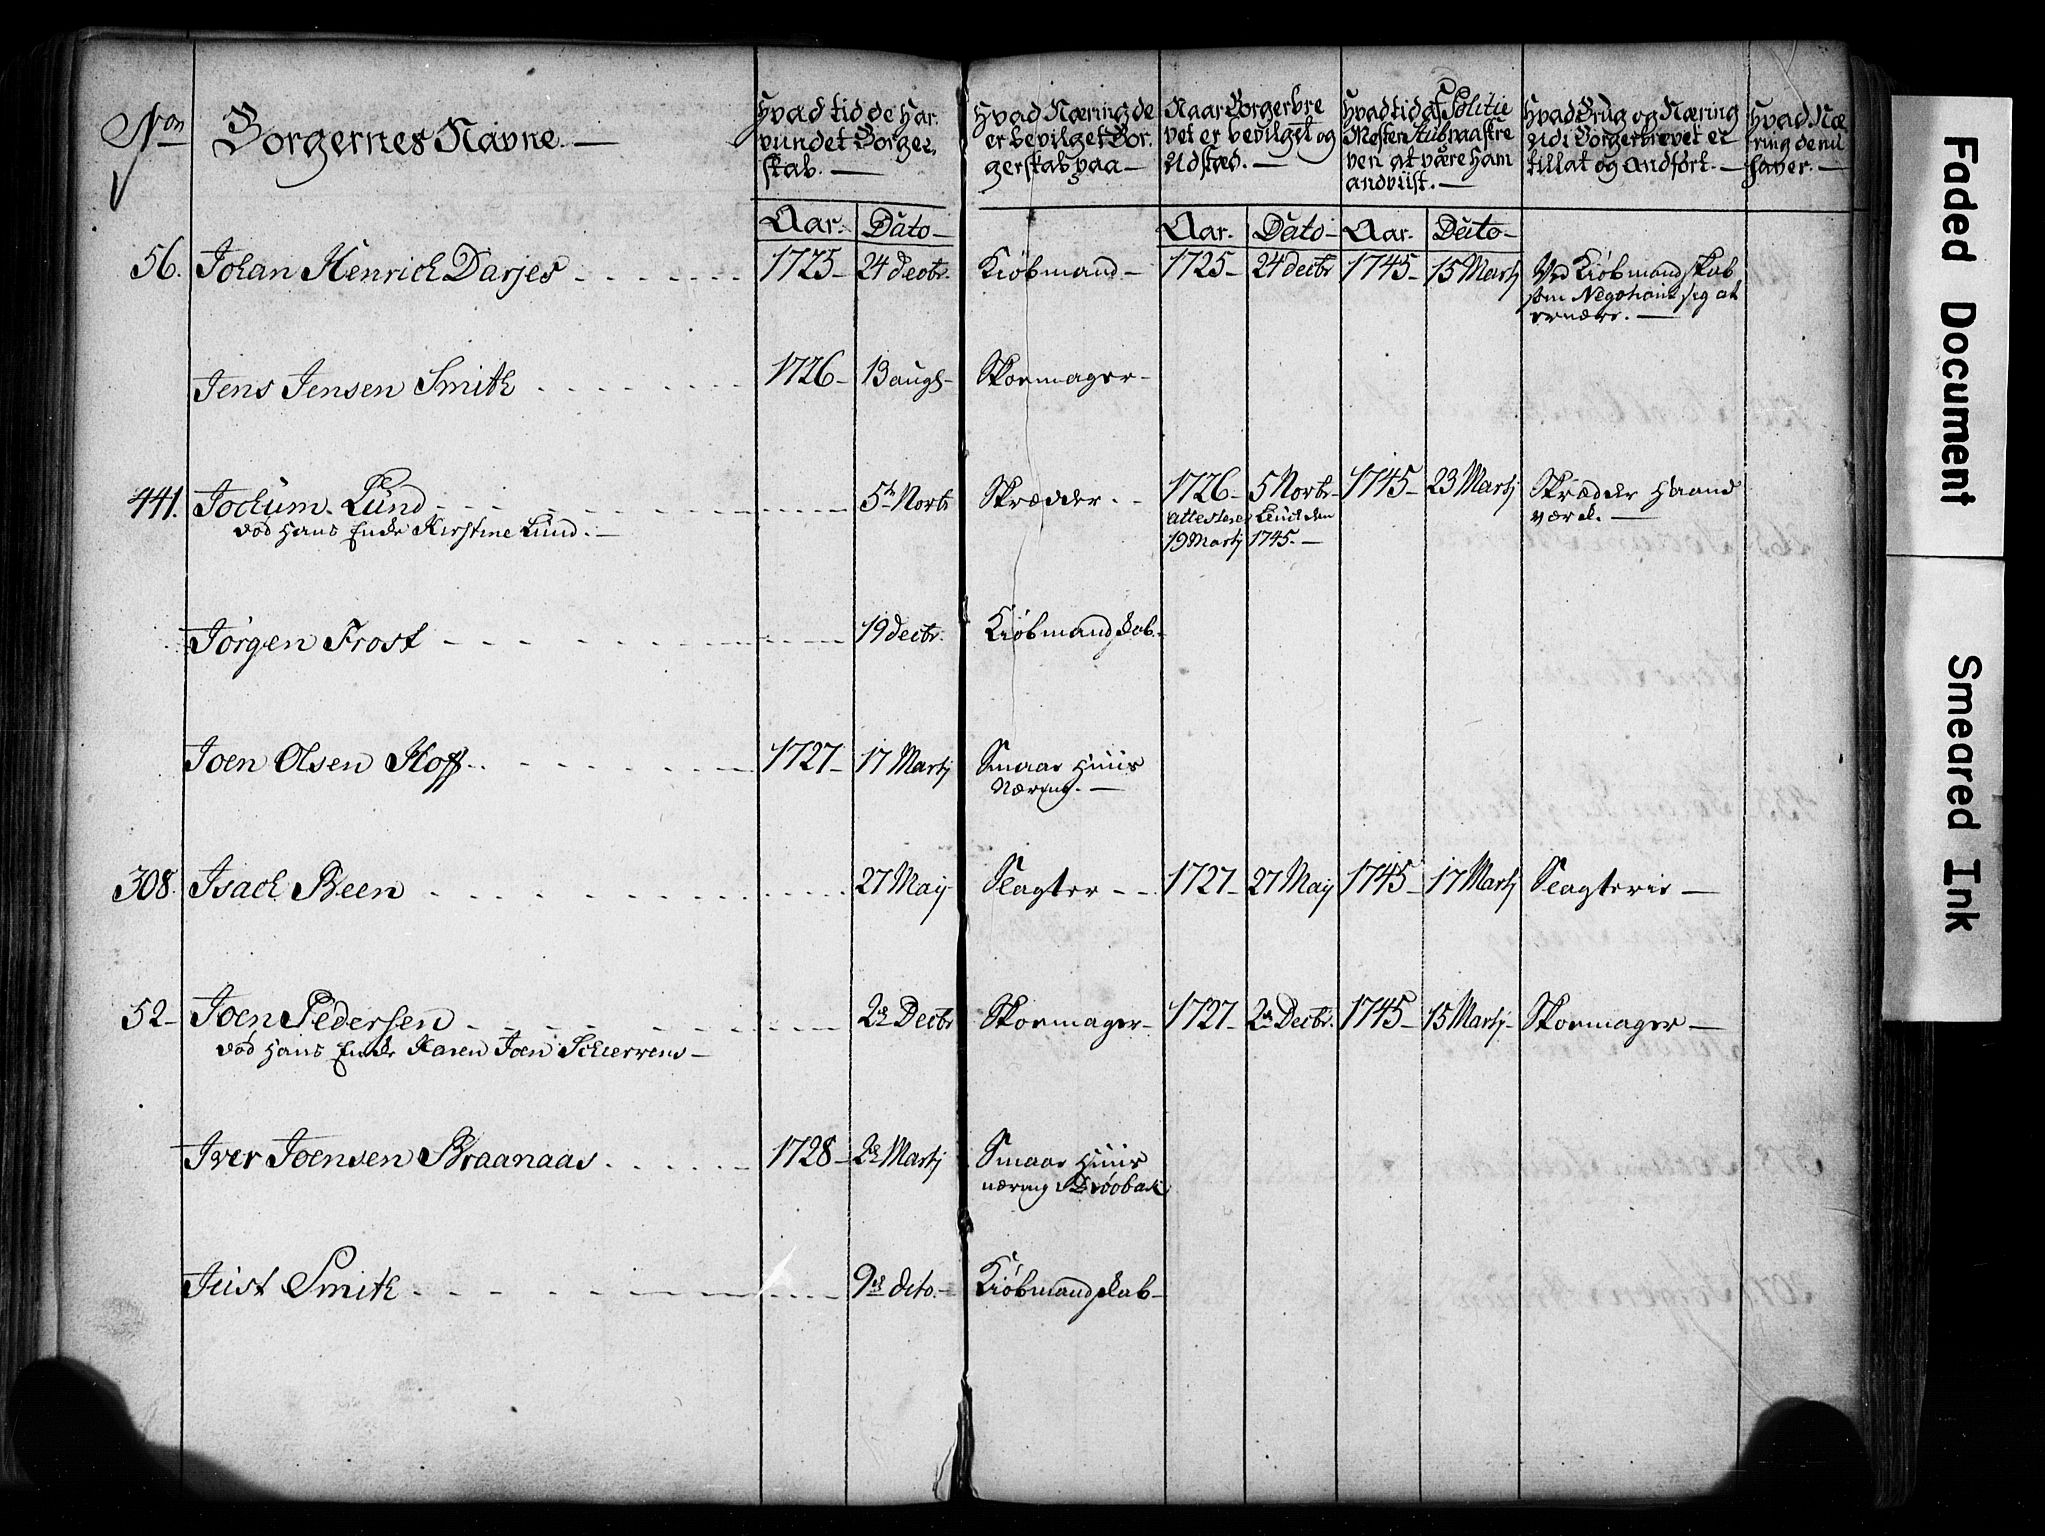 No
Borgernes Navne. —
Hvad tid de har
vundet Borger
skab. —
Hvad Næring de
er bevilget Bor-
gerskab paa —
Naar Borgerbre
vet er bevilget og
Udstæd. —
Hvad tid af Politie
Mester Stubnaastre
ven at være ham
andviist. —
Hvad Brug og Næring
Udi Borgerbrevet er
tillat og Andført. —
Hvad Næ
ring de nu
haver. —
Aar. Dato — Aar. Dato — Aar. Dato —
56. Johan Henrich Darjes 1725 — 24 decbr. Kiøbmand — 1725 — 24 decbr 1745 — 15 Martj Ved Kiøbmandskab
som Negotiant seg at
ernære. —
Jens Jensen Smith 1726 — 13 augs — Skoemager —
441. Jochum Lund 5te Novbr Skrædder 1726 — 5 Novbr — 1745 — 23 Martj Skræder Haand
værch. —
ved Hans Enche Kirstine Lund. — attesteret den
19 Martj 1745. —
Jørgen Frost 19 decbr. Kiøbmandskab —
Joen Olsen Hoff 1727 — 17 Martj Smaae Huus
Næring. —
308. Isach Been 27 Maij Slagter — 1727 — 27 Maij 1745 — 17 Martj Slagterie —
52 — Joen Pedersen 2de Decbr Skoemager — 1727 — 2de Decbr. 1745 — 15 Martj — Skoemager —
ved Hans Enche Karen Joen —
Iver Joensen Braanaas 1728 — 2de Martj Smaae Huus
næring Drøbak
Just Smith 9de dito. — Kiøbmandskab —
Faded Document
Smeared Ink